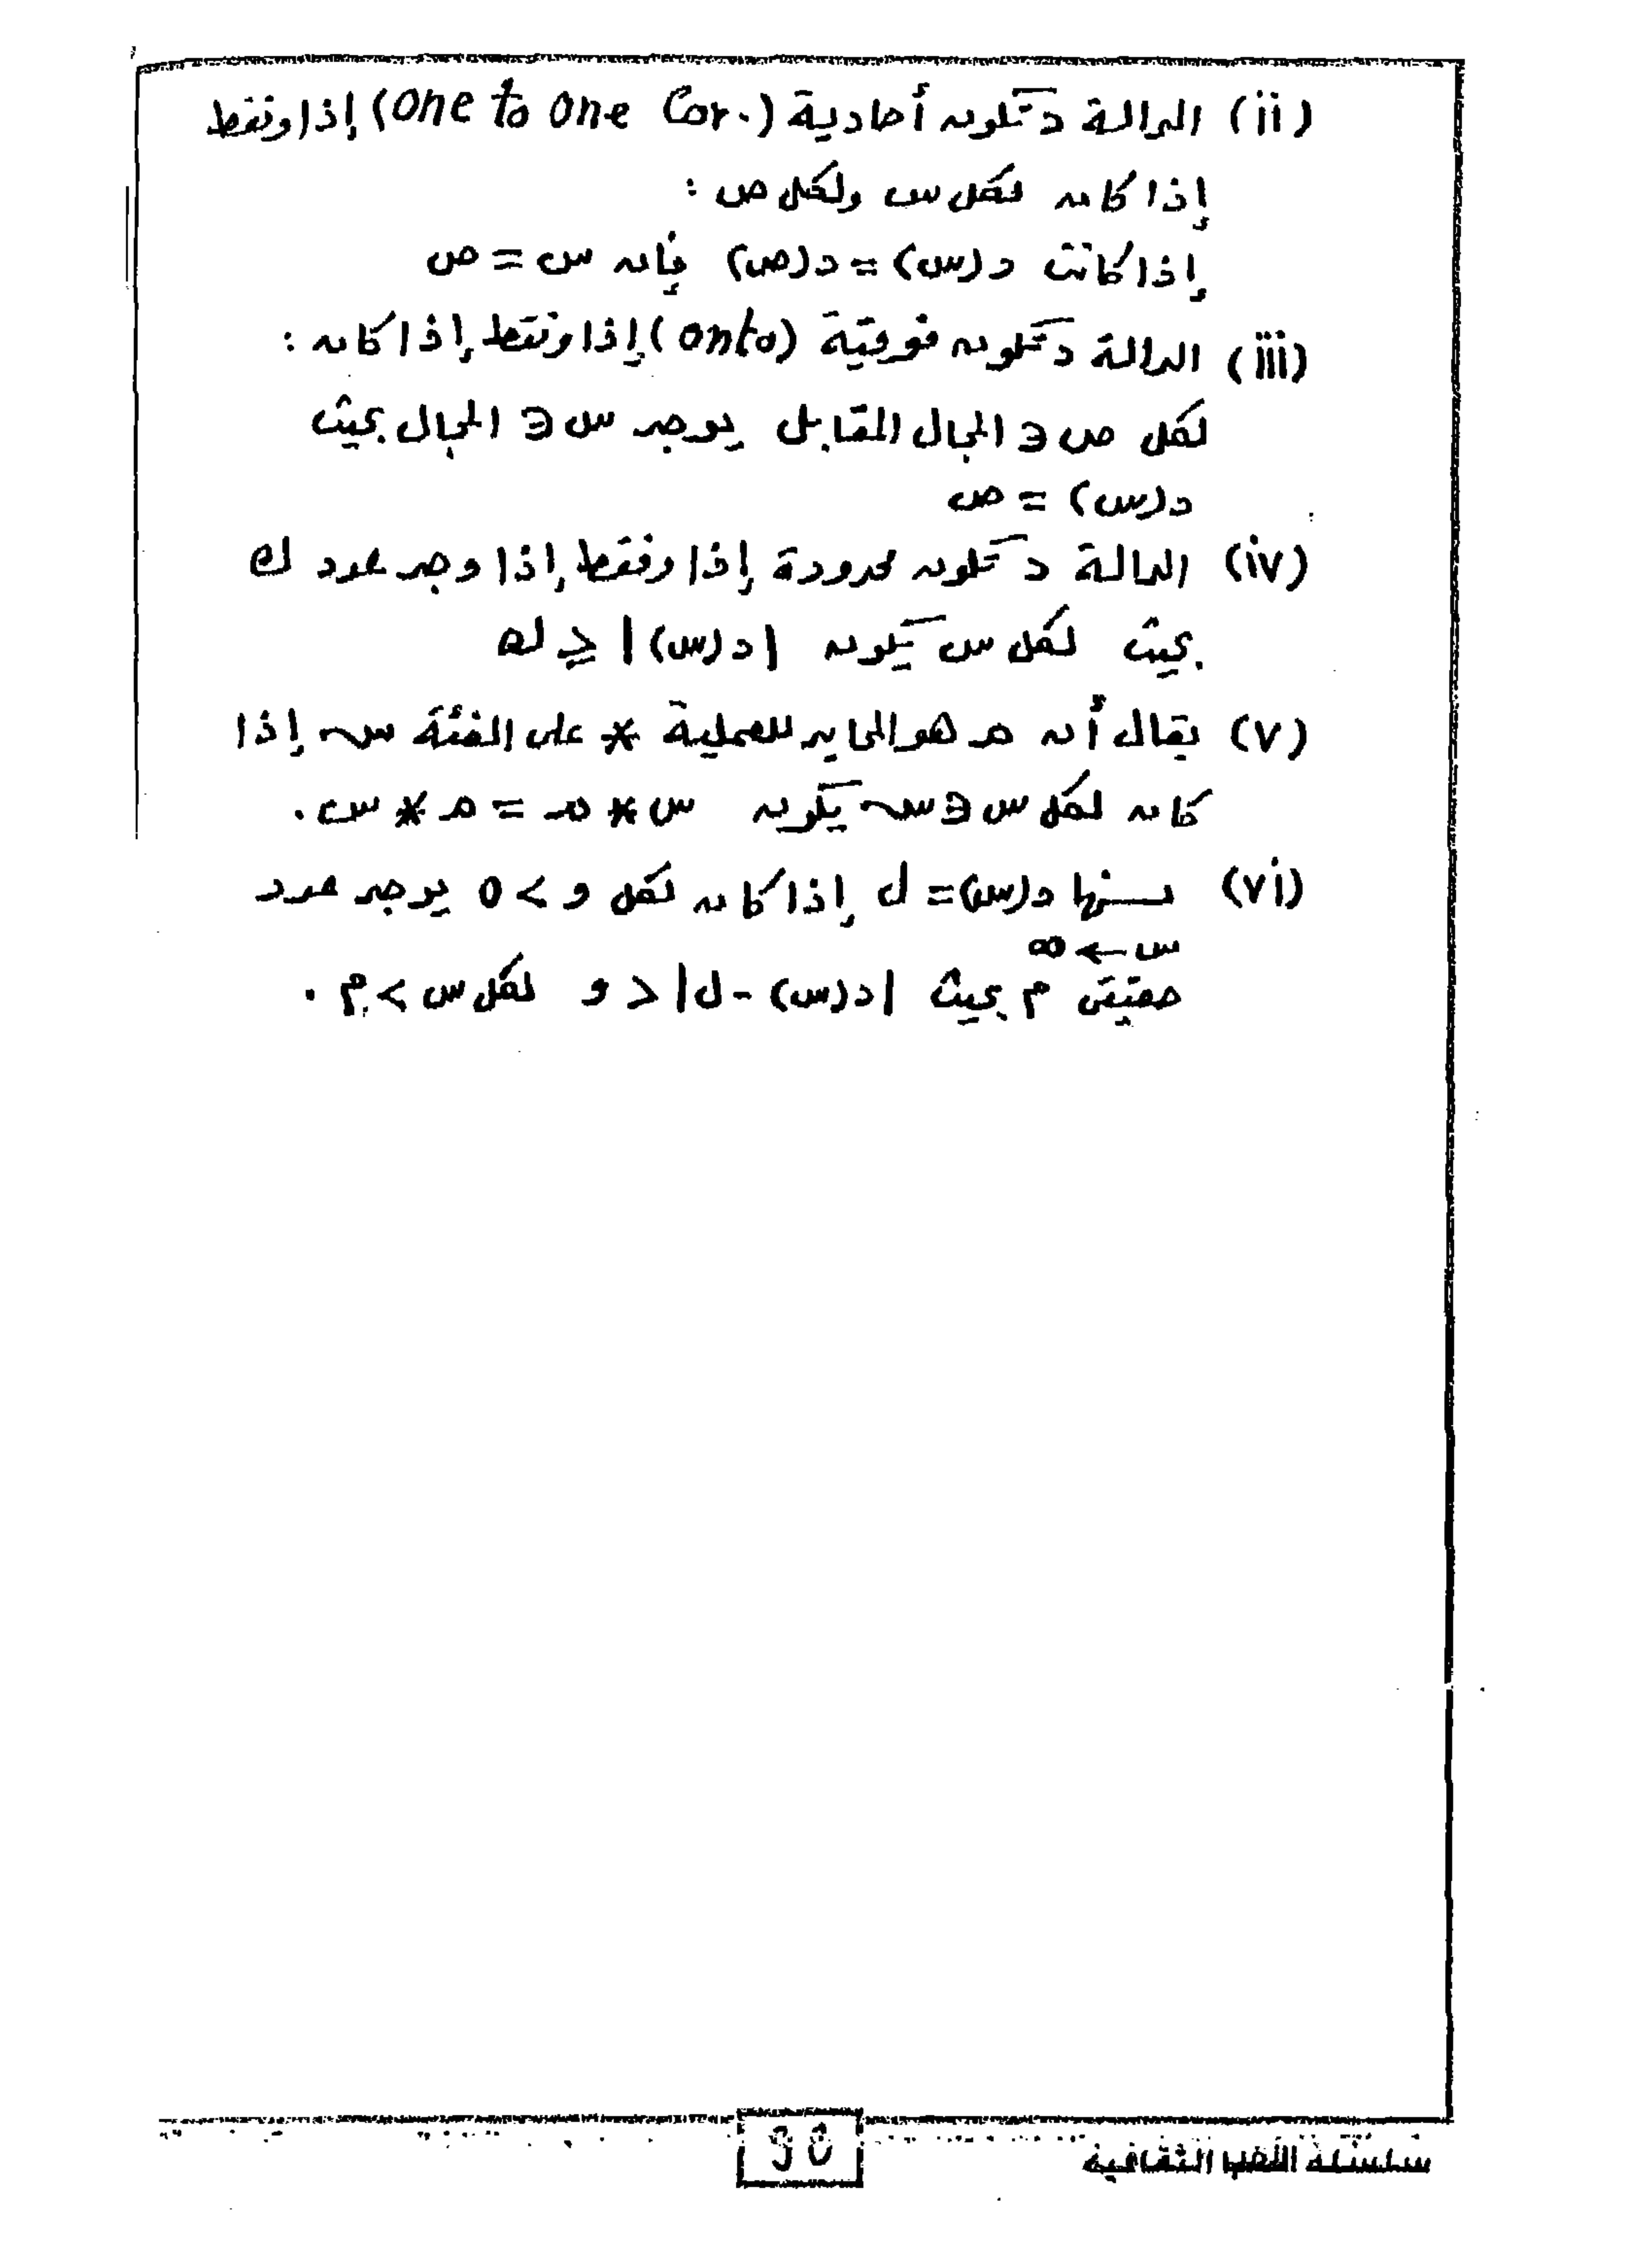 (ii) الدالة د تكون أحادية (One to One Cor.) إذا وفقط
إذا كان لكل س ولكل ص :
إذا كانت د(س) = د(ص) فإن س = ص
(iii) الدالة د تكون فوقية (onto) إذا وفقط إذا كان :
لكل ص ∈ المجال المقابل يوجد س ∈ المجال بحيث
د(س) = ص
(iv) الدالة د تكون محدودة إذا وفقط إذا وجد عدد ك
بحيث لكل س يكون |د(س)| ≤ ك
(v) يقال أن م هو المحايد للعملية * على الفئة س إذا
كان لكل س ∈ س يكون س * م = م * س .
(vi) نهــا د(س) = ل إذا كان لكل و > 0 يوجد عدد
س ← ∞
حقيقي م بحيث |د(س) - ل| < و لكل س > م .
سلسلة الثقافية